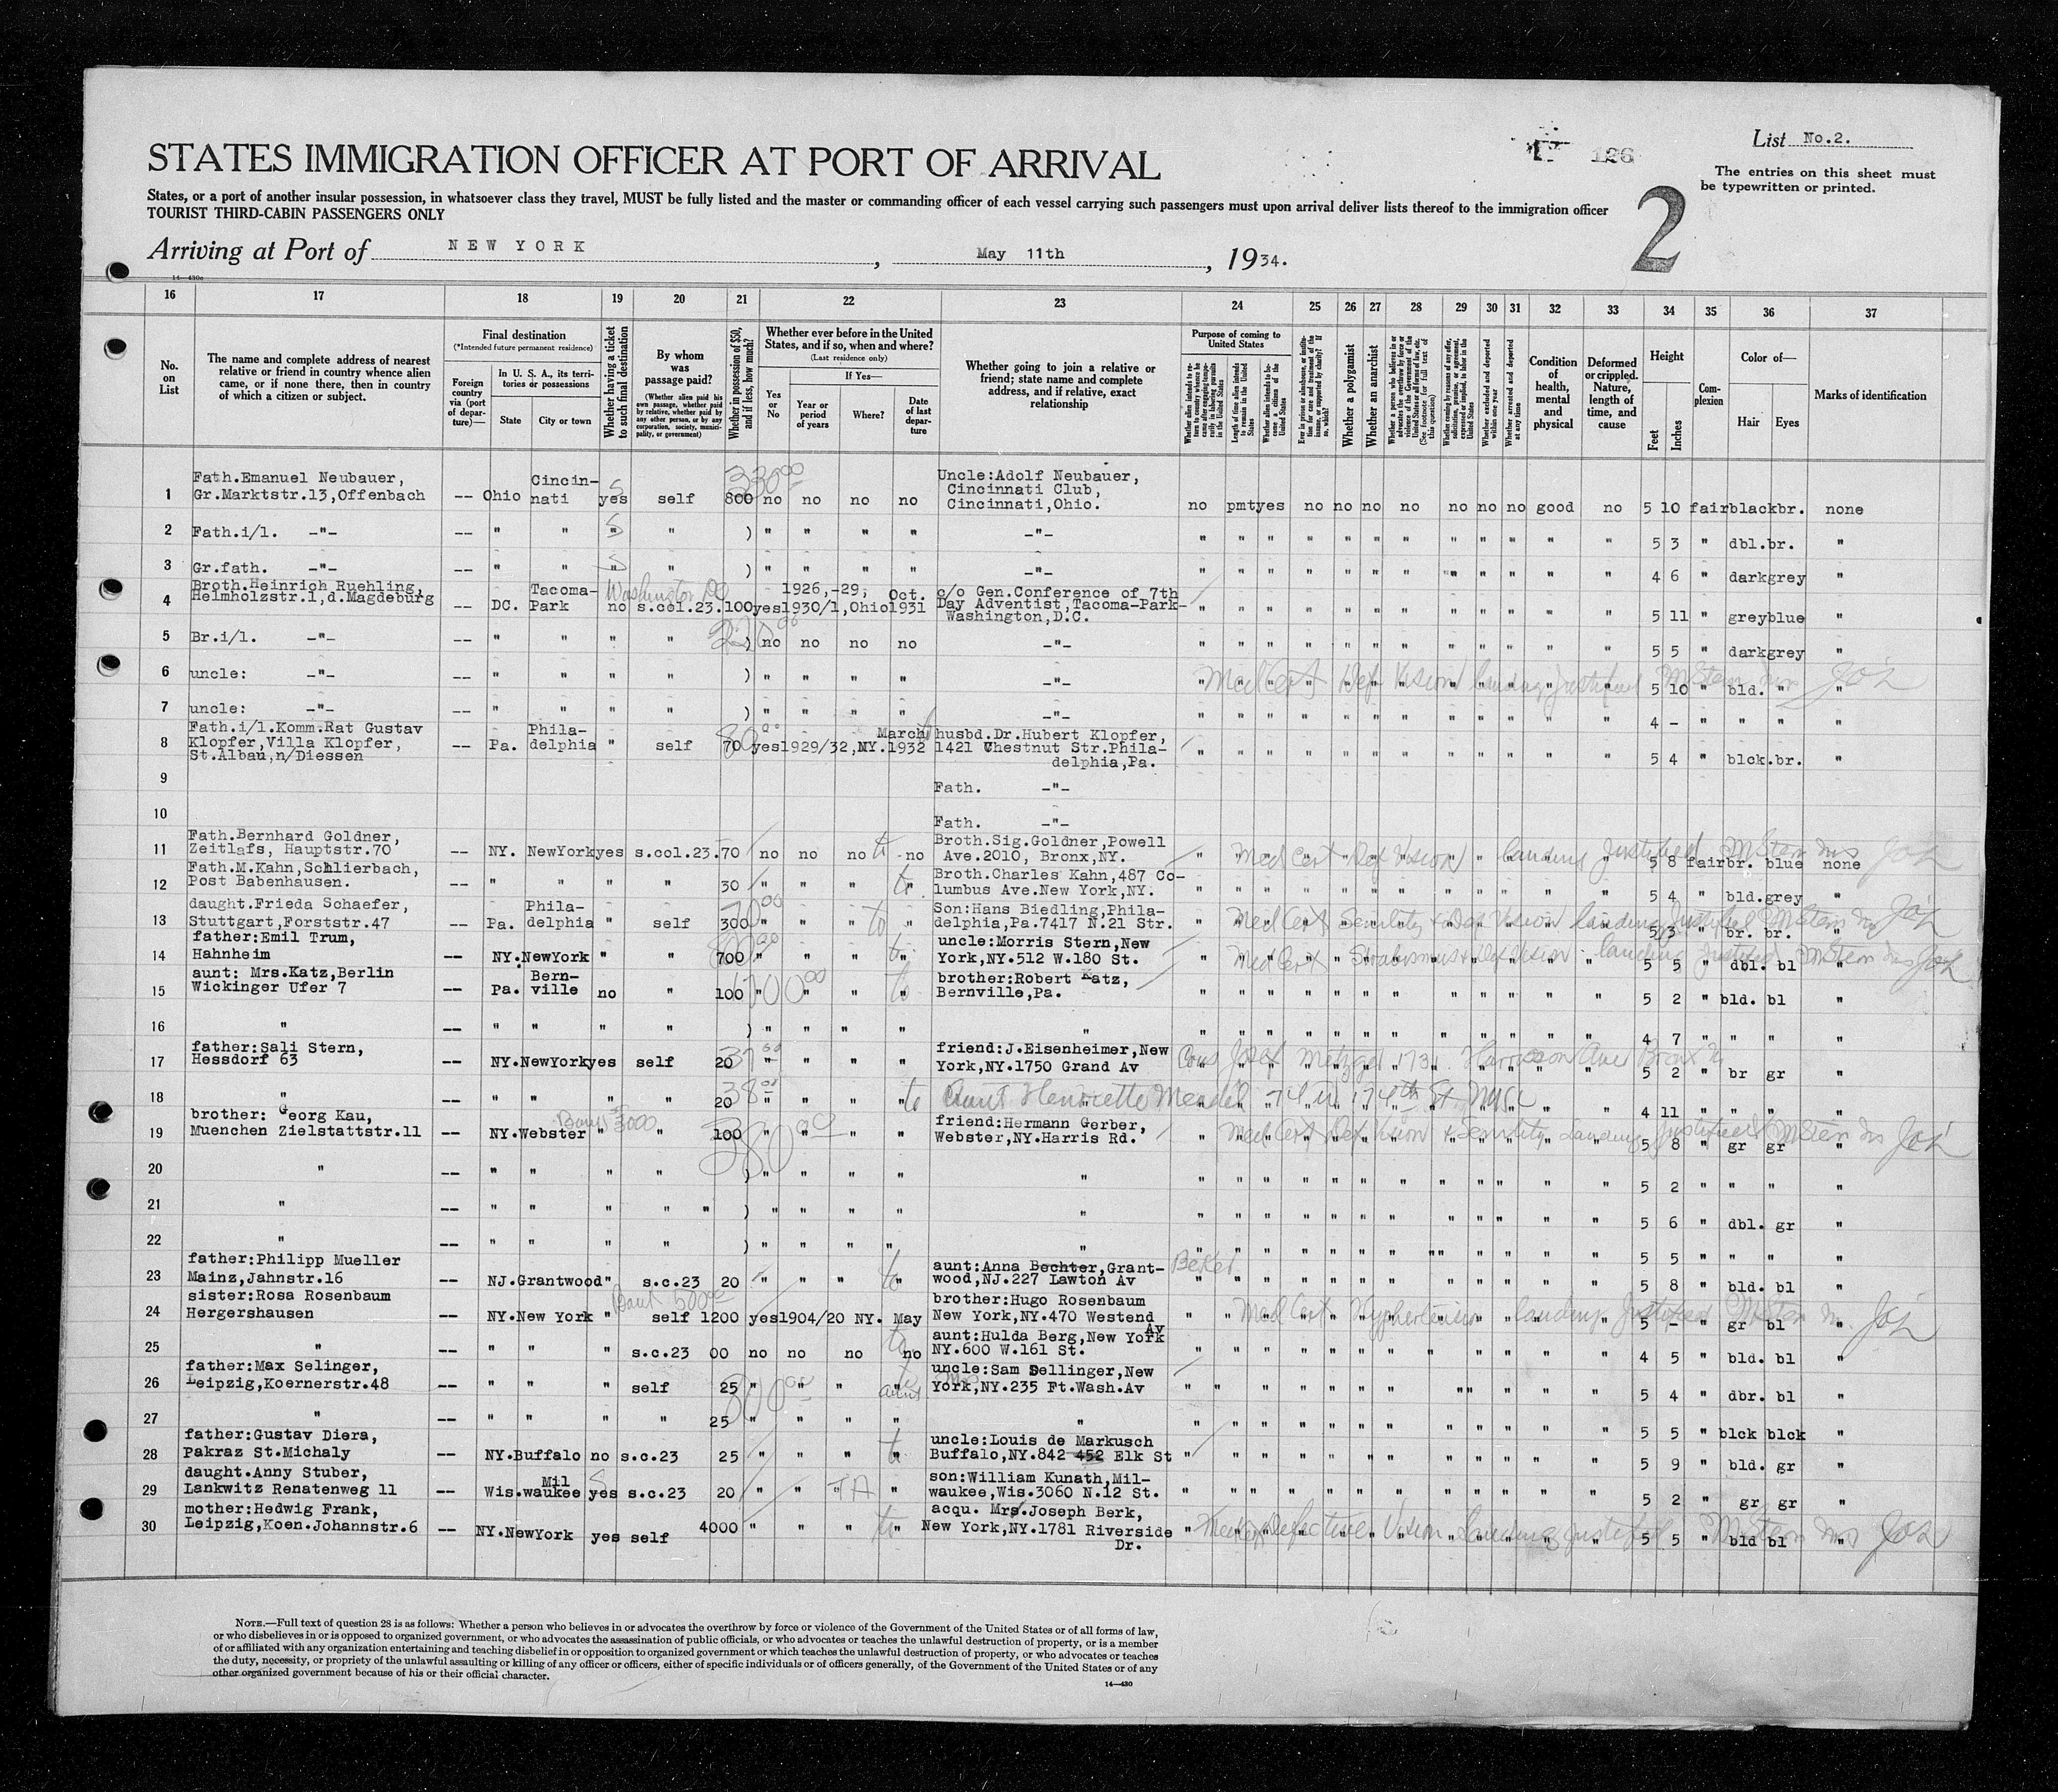 List No.2.
126
STATES IMMIGRATION OFFICER AT PORT OF ARRIVAL
The entries on this sheet must
be typewritten or printed.
States, or a port of another insular possession, in whatsoever class they travel, MUST be fully listed and the master or commanding officer of each vessel carrying such passengers must upon arrival deliver lists thereof to the immigration officer
TOURIST THIRD-CABIN PASSENGERS ONLY
2
Arriving at Port of NEW YORK, May 11th, 1934.
14—430a
16 17 18 19 20 21 22 23 24 25 26 27 28 29 30 31 32 33 34 35 36 37
No. on List
The name and complete address of nearest relative or friend in country whence alien came, or if none there, then in country of which a citizen or subject.
Final destination
(*Intended future permanent residence)
Foreign country via (port of departure)—
In U. S. A., its territories or possessions
State
City or town
Whether having a ticket to such final destination
By whom was passage paid?
(Whether alien paid his own passage, whether paid by relative, whether paid by any other person, or by any corporation, society, municipality, or government)
Whether in possession of $50, and if less, how much?
Whether ever before in the United States, and if so, when and where?
(Last residence only)
Yes or No
If Yes—
Year or period of years
Where?
Date of last departure
Whether going to join a relative or friend; state name and complete address, and if relative, exact relationship
Purpose of coming to United States
Whether alien intends to return to country whence he came after engaging temporarily in laboring pursuits in the United States
Length of time alien intends to remain in the United States
Whether alien intends to become a citizen of the United States
Ever in prison or almshouse, or institution for care and treatment of the insane, or supported by charity? If so, which?
Whether a polygamist
Whether an anarchist
Whether a person who believes in or advocates the overthrow by force or violence of the Government of the United States or all forms of law, etc. (See footnote for full text of this question)
Whether coming by reasons of any offer, solicitation, promise, or agreement, expressed or implied, to labor in the United States
Whether excluded and deported within one year
Whether arrested and deported at any time
Condition of health, mental and physical
Deformed or crippled. Nature, length of time, and cause
Height
Feet
Inches
Complexion
Color of—
Hair
Eyes
Marks of identification
1 Fath.Emanuel Neubauer, Gr.Marktstr.13,Offenbach -- Ohio Cincinnati yes self 800 330.00 no no no no Uncle:Adolf Neubauer, Cincinnati Club, Cincinnati,Ohio. no pmt yes no no no no no no no good no 5 10 fair black br. none
2 Fath.i/l. -"- -- " " " " ) " " " " -"- " " " " " " " " " " " " 5 3 " dbl. br. "
3 Gr.fath. -"- -- " " " " ) " " " " -"- " " " " " " " " " " " " 4 6 " dark grey "
4 Broth.Heinrich Ruehling, Helmholzstr.1,d.Magdeburg -- DC. Tacoma-Park Washington DC no s.col.23. 100 yes 1926,-29, 1930/1,Ohio Oct. 1931 c/o Gen.Conference of 7th Day Adventist,Tacoma-Park-Washington,D.C. " " " " " " " " " " " " 5 11 " grey blue "
5 Br.i/l. -"- -- " " " " ) no no no no -"- " " " " " " " " " " " " 5 5 " dark grey "
6 uncle: -"- -- " " " " ) " " " " -"- Med Cert Def Vision landing justified 5 10 " bld. " "
7 uncle: -"- -- " " " " ) " " " " -"- " " " " " " " " " " " " 4 - " " " "
8 Fath.i/l.Komm.Rat Gustav Klopfer,Villa Klopfer, St.Albau,n/Diessen -- Pa. Philadelphia " self 70 yes 1929/32,NY. March 1932 husbd.Dr.Hubert Klopfer, 1421 Chestnut Str.Philadelphia,Pa. " " " " " " " " " " " " 5 4 " blck. br. "
9 Fath. -"-
10 Fath. -"-
11 Fath.Bernhard Goldner, Zeitlafs, Hauptstr.70 -- NY. NewYork yes s.col.23. 70 no no no to no Broth.Sig.Goldner,Powell Ave.2010, Bronx,NY. Med Cert Def Vision landing justified 5 8 fair br. blue none
12 Fath.M.Kahn,Schlierbach, Post Babenhausen. -- " " " " 30 " " " to " Broth.Charles Kahn,487 Columbus Ave.New York,NY. " " " " " " " " " " " " 5 4 " bld. grey "
13 daught.Frieda Schaefer, Stuttgart,Forststr.47 -- Pa. Philadelphia " self 300 " " " to " Son:Hans Biedling,Philadelphia,Pa.7417 N.21 Str. Med Cert Senility & Def Vision landing justified 5 3 " br. br. "
14 father:Emil Trum, Hahnheim -- NY. NewYork " " 700 " " " to " uncle:Morris Stern,New York,NY.512 W.180 St. Med Cert Strabismus & Def Vision landing justified 5 5 " dbl. bl "
15 aunt: Mrs.Katz,Berlin Wickinger Ufer 7 -- Pa. Bernville no " 100 " " " to " brother:Robert Katz, Bernville,Pa. " " " " " " " " " " " " 5 2 " bld. bl "
16 " -- " " " " ) " " " " " " " " " " " " " " " " " 4 7 " " " "
17 father:Sali Stern, Hessdorf 63 -- NY. NewYork yes self 20 " " " " friend:J.Eisenheimer,New York,NY.1750 Grand Av 5 2 " br gr "
18 " -- " " " " 20 38.00 " " " to " Aunt Henriette Mendel 174th St NYC 4 11 " " " "
19 brother: Georg Kau, Muenchen Zielstattstr.11 -- NY. Webster " " 100 380.00 " " " " friend:Hermann Gerber, Webster,NY.Harris Rd. Med Cert Def Vision & Senility landing justified 5 8 " gr gr "
20 " -- " " " " ) " " " " " " " " " " " " " " " " " 5 2 " " " "
21 " -- " " " " " ) " " " " " " " " " " " " " " " " " 5 6 " dbl. gr "
22 " -- " " " " ) " " " " " " " " " " " " " " " " " 5 5 " " " "
23 father:Philipp Mueller Mainz,Jahnstr.16 -- NJ. Grantwood " s.c.23 20 " " " to " aunt:Anna Bechter,Grantwood,NJ.227 Lawton Av " " " " " " " " " " " " 5 8 " bld. bl "
24 sister:Rosa Rosenbaum Hergershausen -- NY. New York " self 1200 yes 1904/20 NY. May brother:Hugo Rosenbaum New York,NY.470 Westend Av Med Cert landing justified 5 - " gr bl "
25 " -- " " " s.c.23 00 no no no no aunt:Hulda Berg,New York NY.600 W.161 St. " " " " " " " " " " " " 4 5 " bld. bl "
26 father:Max Selinger, Leipzig,Koernerstr.48 -- " " " self 25 " " " " uncle:Sam Sellinger,New York,NY.235 Ft.Wash.Av " " " " " " " " " " " " 5 4 " dbr. bl "
27 " -- " " " " 25 " " " " " " " " " " " " " " " " " 5 5 " blck blck "
28 father:Gustav Diera, Pakraz St.Michaly -- NY. Buffalo no s.c.23 25 " " " to " uncle:Louis de Markusch Buffalo,NY.842 452 Elk St " " " " " " " " " " " " 5 9 " bld. gr "
29 daught.Anny Stuber, Lankwitz Renatenweg 11 -- Wis. Milwaukee yes s.c.23 20 " " " " son:William Kunath,Milwaukee,Wis.3060 N.12 St. " " " " " " " " " " " " 5 2 " gr gr "
30 mother:Hedwig Frank, Leipzig,Koen.Johannstr.6 -- NY. NewYork yes self 4000 " " " to " acqu. Mrs.Joseph Berk, New York,NY.1781 Riverside Dr. Defective Vision landing justified 5 5 " bld bl "
NOTE.—Full text of question 28 is as follows: Whether a person who believes in or advocates the overthrow by force or violence of the Government of the United States or of all forms of law,
or who disbelieves in or is opposed to organized government, or who advocates the assassination of public officials, or who advocates or teaches the unlawful destruction of property, or is a member
of or affiliated with any organization entertaining and teaching disbelief in or opposition to organized government or which teaches the unlawful destruction of property, or who advocates or teaches
the duty, necessity, or propriety of the unlawful assaulting or killing of any officer or officers, either of specific individuals or of officers generally, of the Government of the United States or of any
other organized government because of his or their official character.
14—430